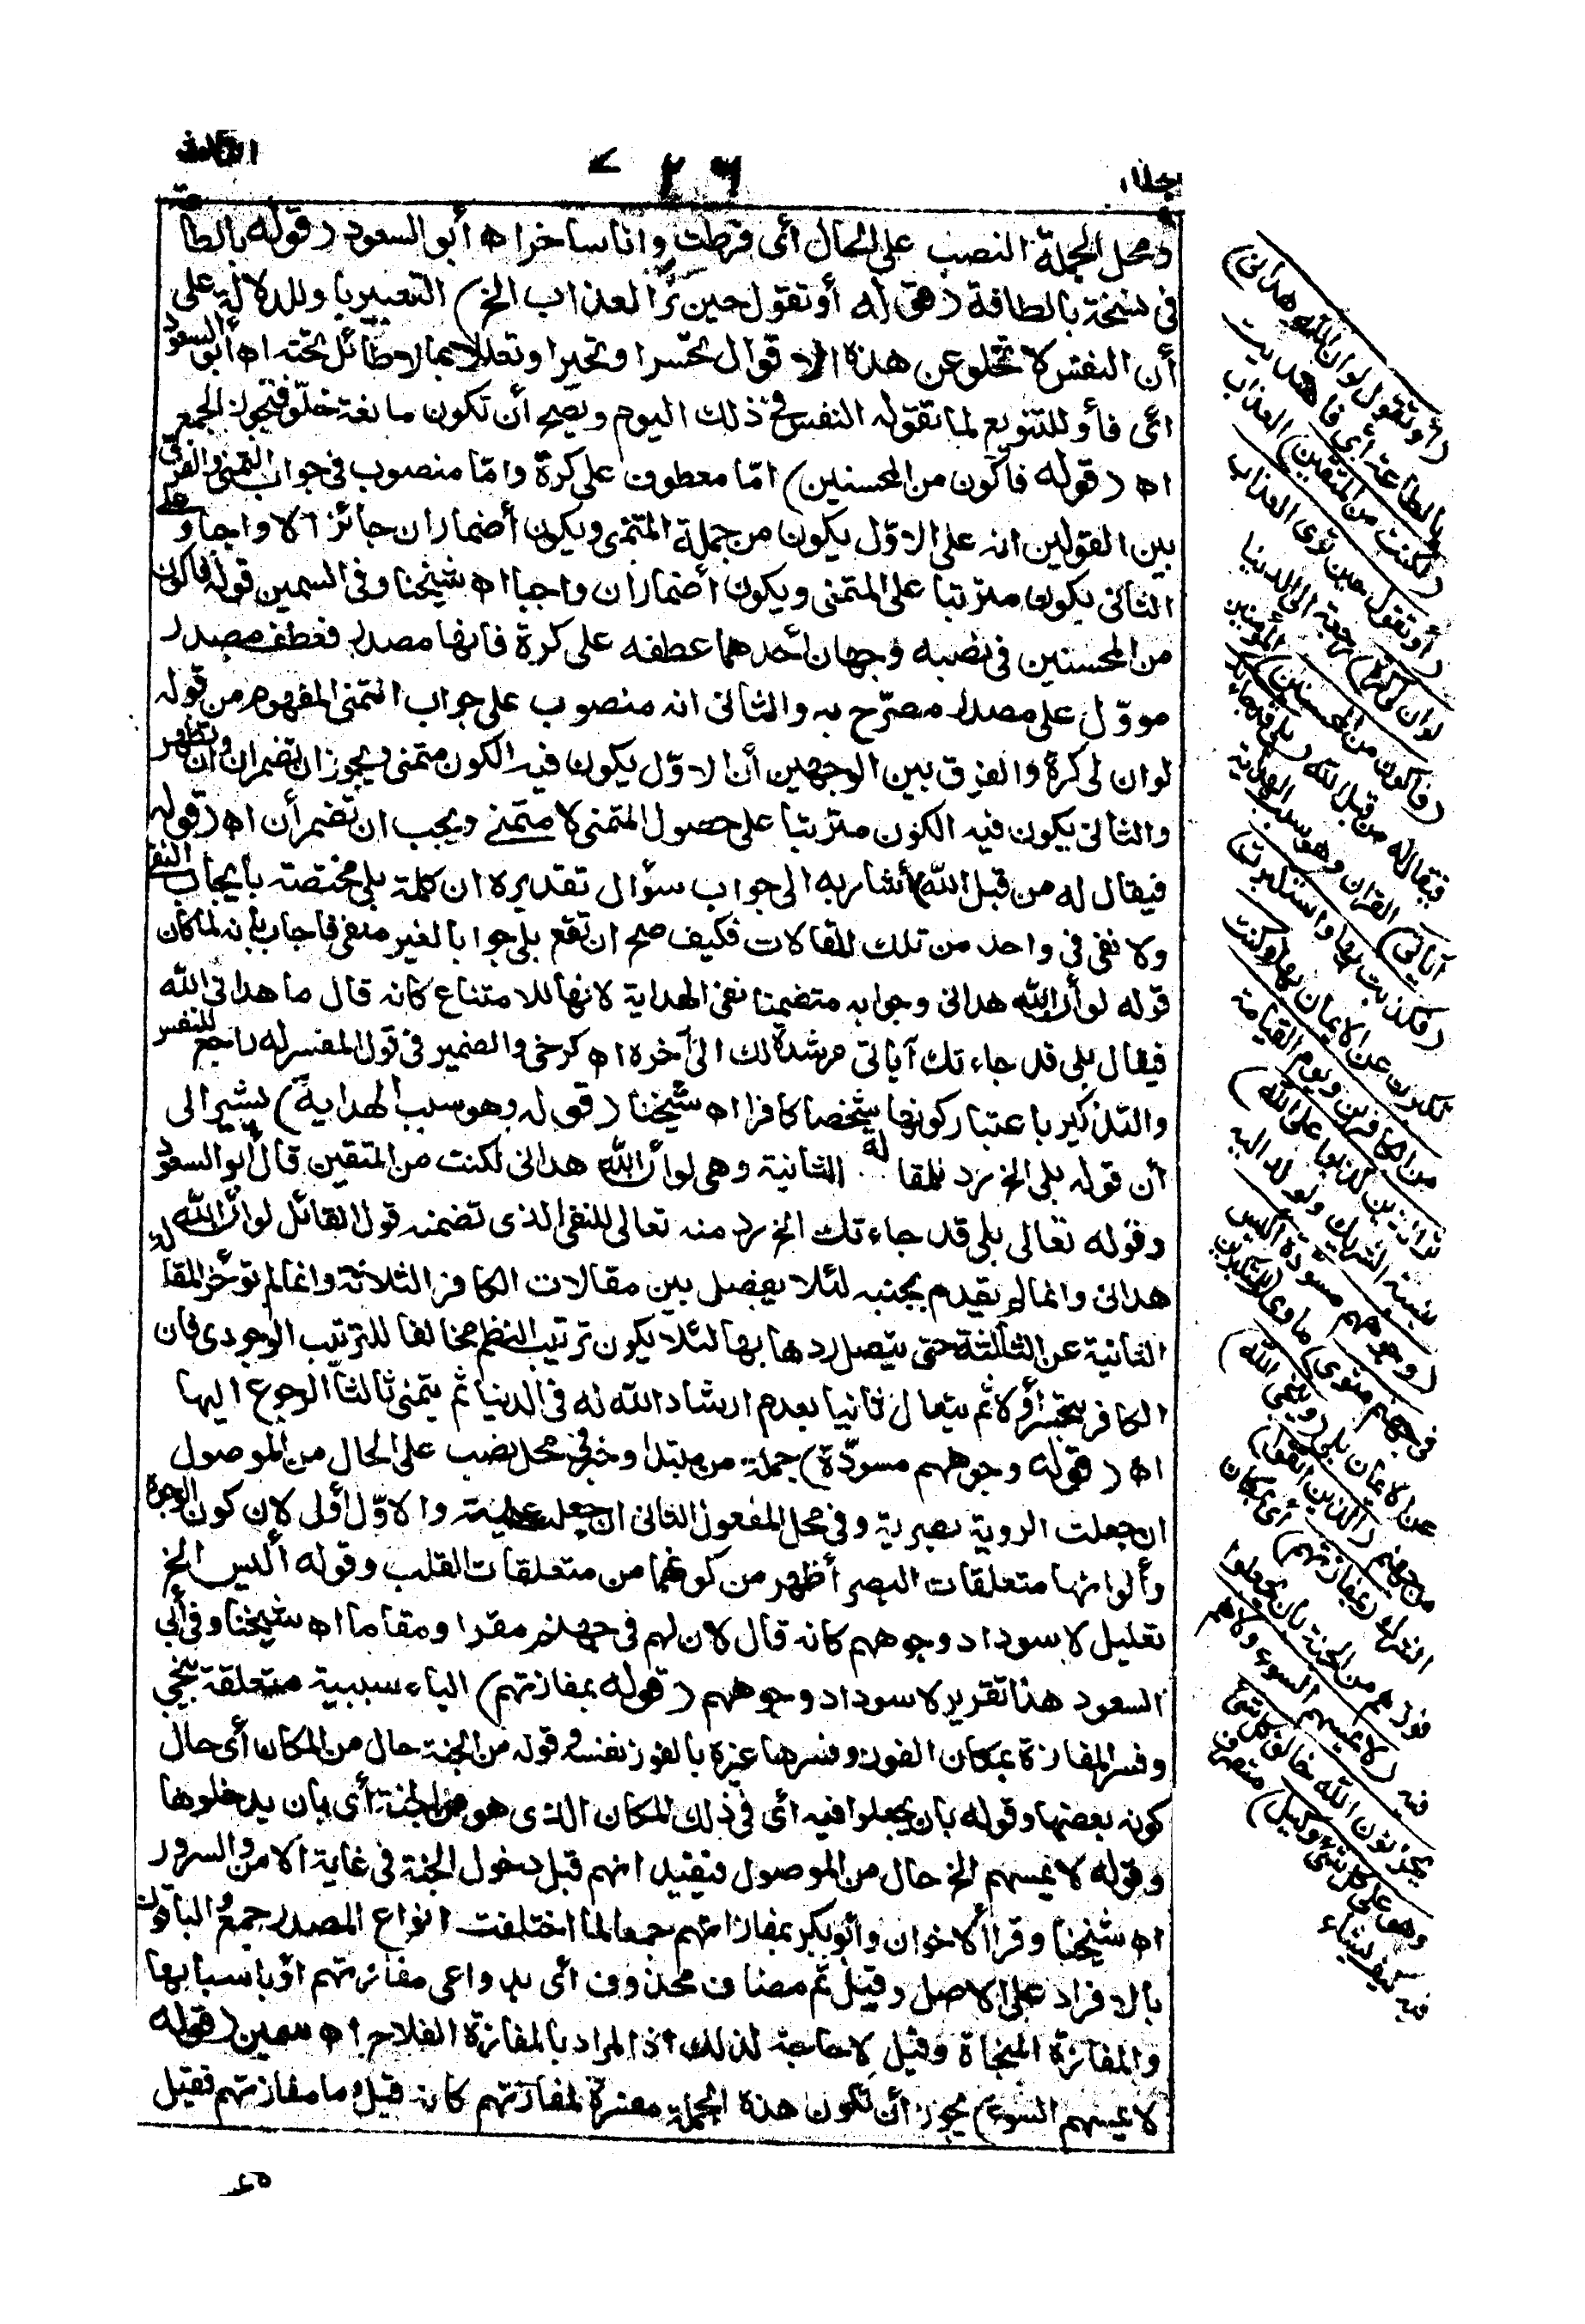 جلد
٢٢٦
الثالث
ومحل الجملة النصب على الحال أى فرطت وانا ساخر اه أبو السعود (قوله بالطاعة
فى نسخة بالطاقة (قوله أو تقول حين ترى العذاب الخ) التعبير بأو للدلالة على
أن النفس لا تخلو عن هذه الاقوال تحسرا وتحيرا وتعللا بما لا طائل تحته اه أبو السعود
أى فأو للتنويع لما تقوله النفس فى ذلك اليوم ويصح أن تكون مانعة خلو فتجوز الجمع
اه (قوله فأكون من المحسنين) امّا معطوف على كرة وامّا منصوب فى جواب التمنى والفرق
بين القولين انه على الاوّل يكون من جملة المتمنى ويكون أضمار ان جائزا لا واجبا وعلى
الثانى يكون مترتبا على المتمنى ويكون اضمار ان واجبا اه شيخنا وفى السمين قوله فاكون
من المحسنين فى نصبه وجهان أحدهما عطفه على كرة فانها مصدر فعطف مصدر
مووّل على مصدر مصرّح به والثانى انه منصوب على جواب التمنى المفهوم من قوله
لو ان لى كرة والفرق بين الوجهين أن الاوّل يكون فيه الكون متمنى ويجوز ان تضمر ان وان تظهر
والثانى يكون فيه الكون مترتبا على حصول المتمنى لا متمنى ويجب ان تضمر أن اه (قوله
فيقال له من قبل الله) أشار به الى جواب سؤال تقديره ان كلمة بلى مختصة بايجاب النفى
ولا نفى فى واحد من تلك المقالات فكيف صح ان تقع بلى جوابا لغير منفى فاجاب بأنه لما كان
قوله لو أن الله هدانى وجوابه متضمنا نفى الهداية لانها للامتناع كانه قال ما هدانى الله
فيقال بلى قد جاءتك آياتى مرشدة لك الى آخره اه كرخى والضمير فى قول المفسر له راجع للنفس
والتذكير باعتبار كونها شخصا كافرا اه شيخنا (قوله وهو سبب الهداية) يشير الى
أن قوله بلى الخ رد للمقالة الثانية وهى لو أن الله هدانى لكنت من المتقين قال أبو السعود
وقوله تعالى بلى قد جاءتك الخ رد منه تعالى للنفى الذى تضمنه قول القائل لو أن الله
هدانى وانما لم يقدم بجنبه لئلا يفصل بين مقالات الكافر الثلاثة وانما لم تؤخر المقالة
الثانية عن الثالثة حتى يتصل ردها بها لئلا يكون ترتيب النظم مخالفا للترتيب الوجودى فان
الكافر يتحسر أولا ثم يتعلل ثانيا بعدم ارشاد الله له فى الدنيا ثم يتمنى ثالثا الرجوع اليها
اه (قوله وجوههم مسودّة) جملة من مبتدا وخبر فى محل نصب على الحال من الموصول
ان جعلت الروية بصرية وفى محل المفعول الثانى ان جعلت علمية والاوّل أولى لان كون الوجوه
وألوانها متعلقات البصر أظهر من كونهما من متعلقات القلب وقوله أليس الخ
تعليل لاسوداد وجوههم كانه قال لان لهم فى جهنم مقرا ومقاما اه شيخنا وفى أبى
السعود هذا تقرير لاسوداد وجوههم (قوله بمفازتهم) الباء سببية متعلقة بينجى
وفسر المفازة بمكان الفوز وفسرها غيره بالفوز نفسه قوله من الجنة حال من المكان أى حال
كونه بعضها وقوله بان يجعلوا فيه أى فى ذلك المكان الذى هو من الجنة أى بان يدخلوها
وقوله لا يمسهم الخ حال من الموصول فيفيد انهم قبل دخول الجنة فى غاية الامن والسرور
اه شيخنا وقرا الاخوان وأبو بكر بمفازاتهم جمعا لما اختلفت انواع المصدر جمع والباقون
بالافراد على الاصل وقيل ثم مضاف محذوف أى بدواعى مفازتهم أو باسبابها
والمفازة المنجاة وقيل لا حاجة لذلك اذ المراد بالمفازة الفلاح اه سمين (قوله
لا يمسهم السوء) يجوز أن تكون هذه الجملة مفسرة لمفازتهم كانه قيل وما مفازتهم فقيل
(أو تقول لو ان الله هدانى)
بالطاعة أى فاهتديت
(لكنت من المتقين) العذاب
(أو تقول حين ترى العذاب
لو ان لى كرة) رجعة الى الدنيا
(فاكون من المحسنين) المؤمنين
فيقال له من قبل الله (بلى قد جاءتك
آياتى) القران وهو سبب الهداية
(فكذبت بها واستكبرت)
تكبرت عن الايمان بها (وكنت
من الكافرين ويوم القيامة
ترى الذين كذبوا على الله)
بنسبة الشريك والولد اليه
(وجوههم مسودة أليس
فى جهنم مثوى) ماوى (للمتكبرين)
عن الايمان بلى (وينجى الله)
من جهنم (الذين اتقوا)
الشرك (بمفازتهم) أى بمكان
فوزهم من الجنة بان يجعلوا
فيه (لا يمسهم السوء ولا هم
يحزنون الله خالق كل شئ
وهو على كل شئ وكيل) متصرف
فيه كيف يشاء